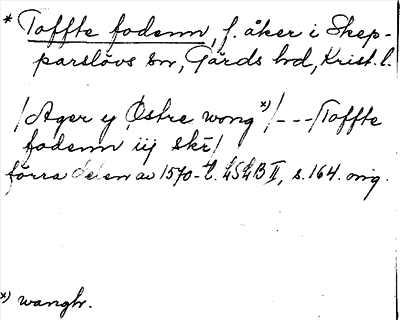 * Toffte fodenn, f. åker i Skep-
parslövs sn, Gärds hd, Krist. l.
/Ager y Østre wong *)/---/Toffte
fodenn iij skr/
förra delen av 1570-t. LSLB II, s. 164. orig.
*) wangh.